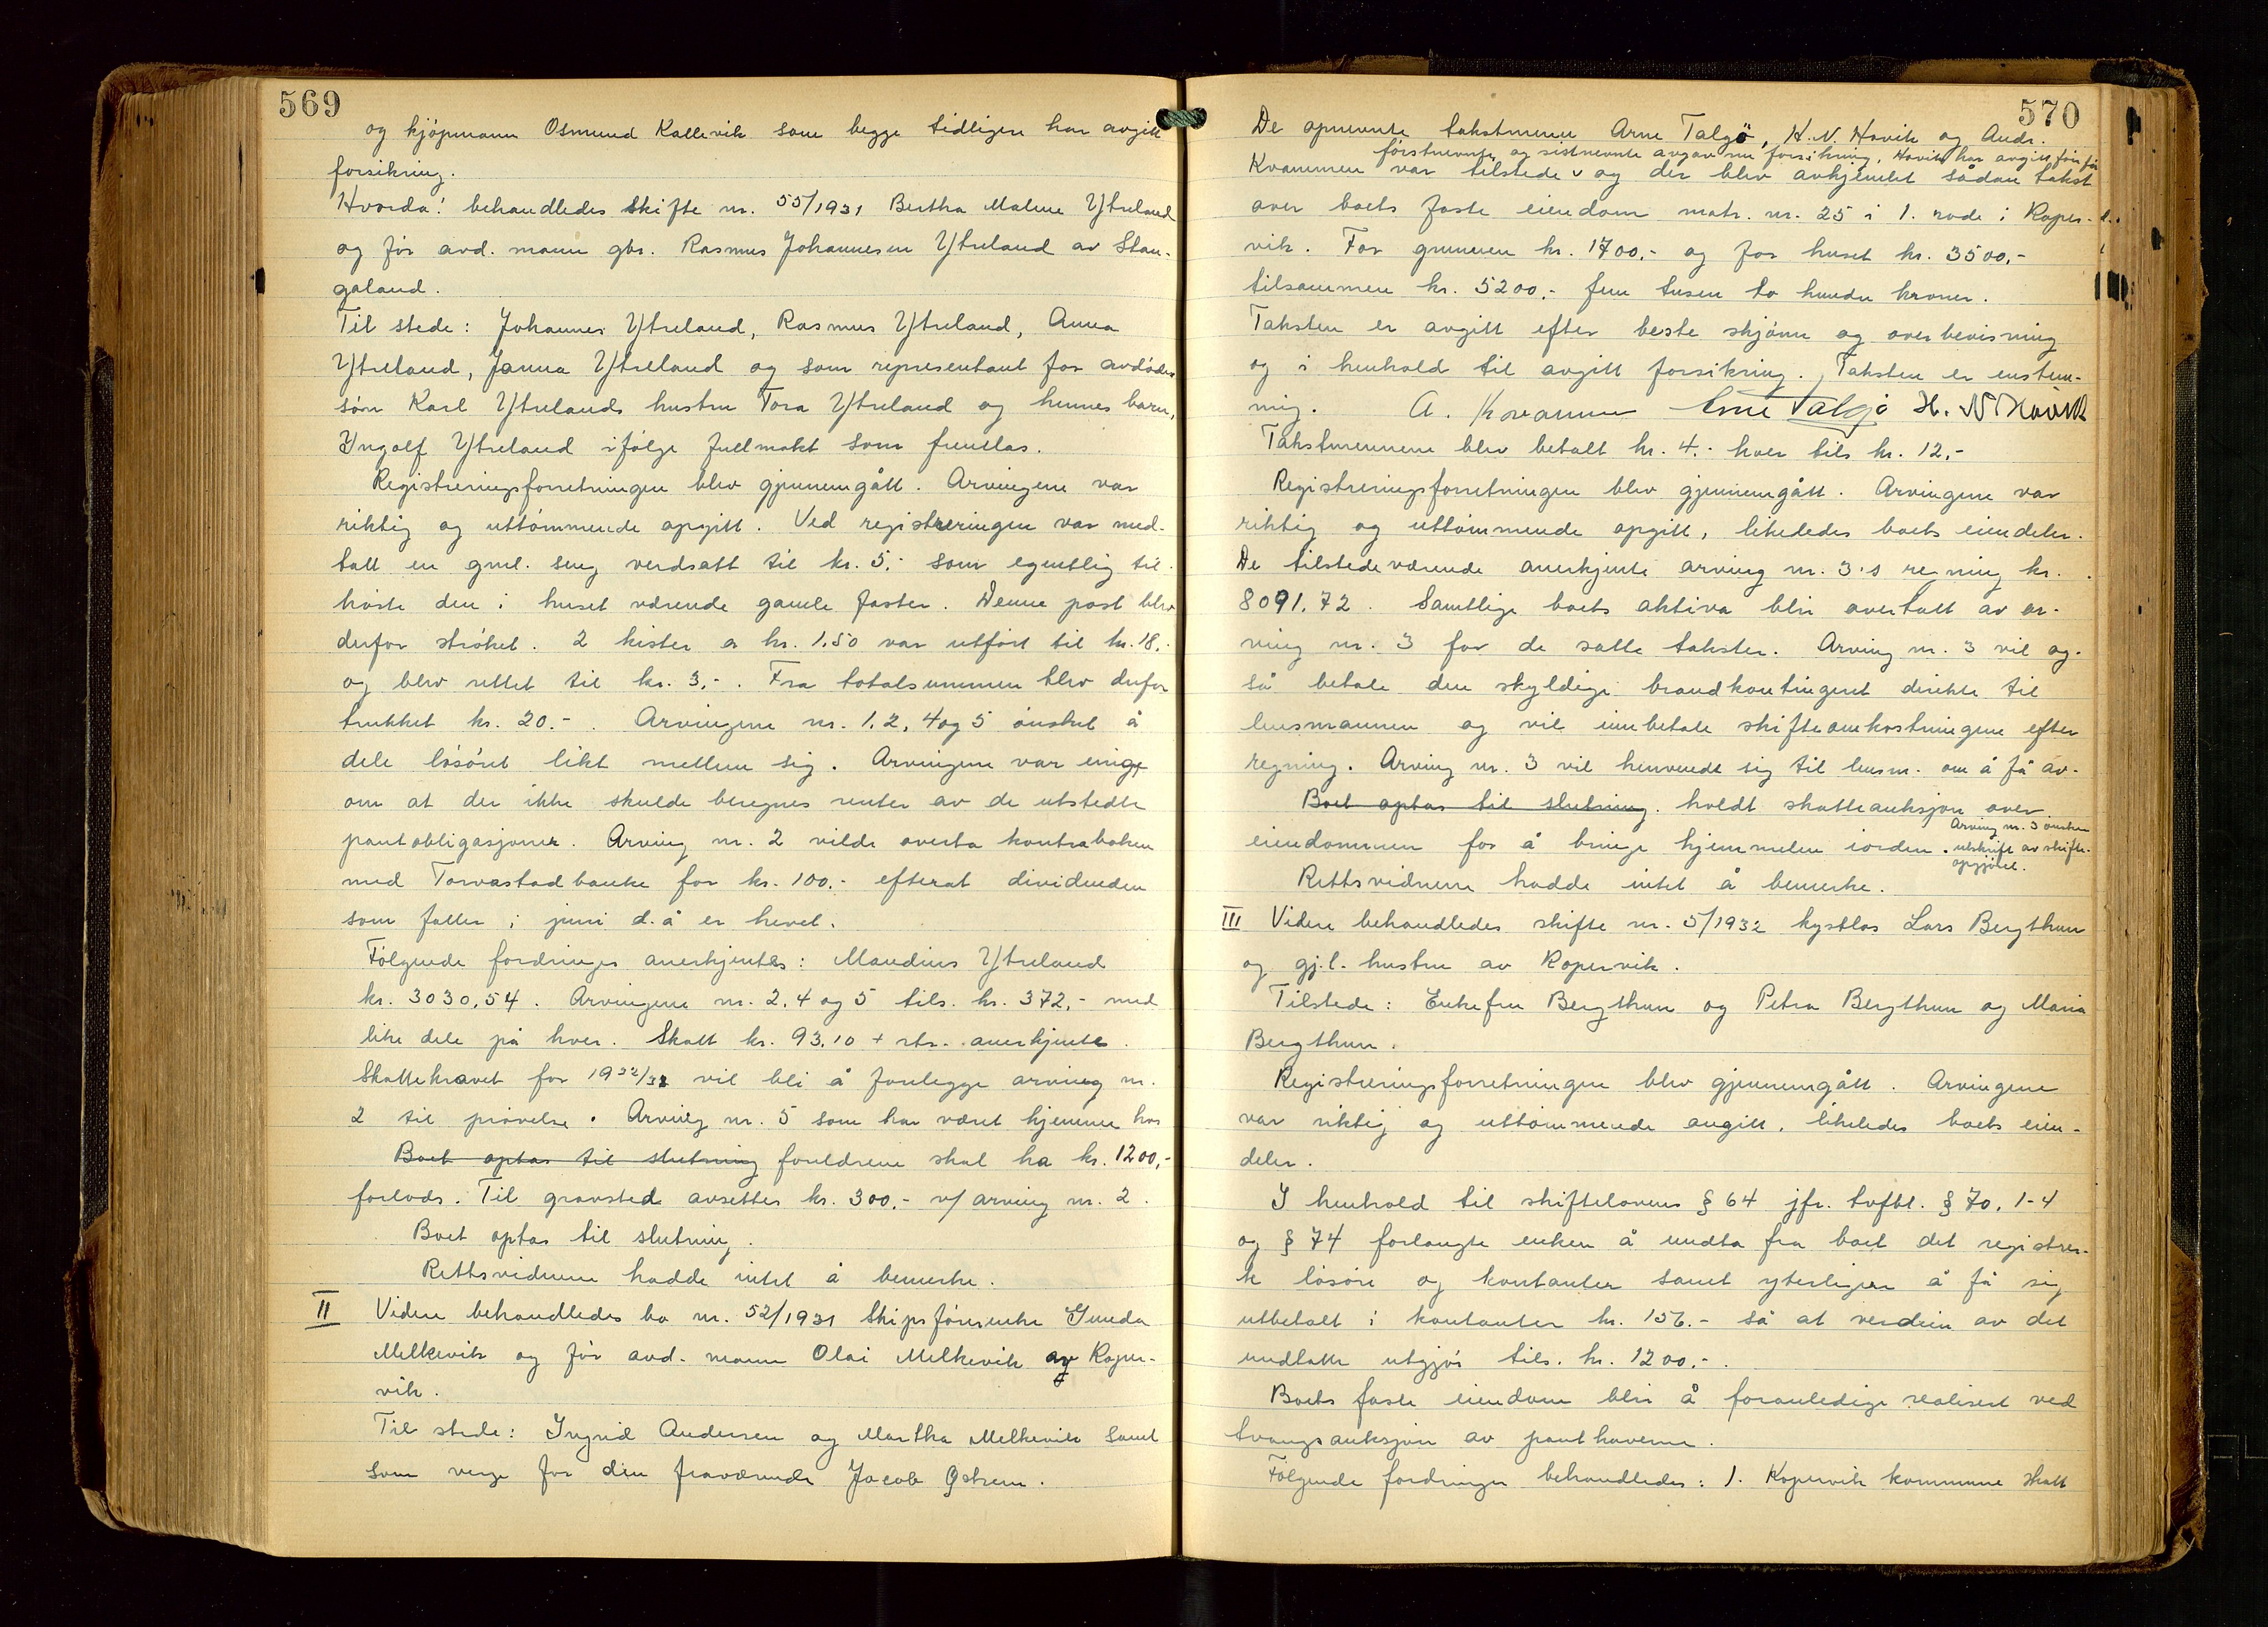 569
og kjöpmann Osmund Kallevik som begge tidligere har avgitt
forsikring.
Hvorda! behandledes Skifte nr. 55/1931 Bertha Malene Ytreland
og för avd. mann gbr. Rasmus Johannesen Ytreland av Stan-
galand.
Til stede: Johannes Ytreland, Rasmus Ytreland, Anna
Ytreland, Janna Ytreland og som representant for avdödes
sön Karl Ytrelands hustru Tora Ytreland og hennes barn,
Yngolf Ytreland ifölge fullmakt som fremlas.
Registreringsforretningen blev gjennemgått. Arvingene var
riktig og uttömmende opgitt. Ved registreringen var med-
tatt en gml. seng verdsatt til kr. 5.- som egentlig til-
hörte den i huset værende gamle faster. Denne post blev
derfor ströket. 2 kister a kr. 1.50 var utfört til kr. 18.-
og blev rettet til kr. 3.-. Fra totalsummen blev derfor
trukket kr. 20.-. Arvingene nr. 1, 2, 4 og 5 önsket å
dele lösöret likt mellem sig. Arvingene var enige
om at der ikke skulde beregnes renter av de utstedte
pantobligasjoner. Arving nr. 2 vilde overta kontraboken
med Torvastad banke for kr. 100.- efterat dividenden
som faller i juni d.å er hevet.
Fölgende fordringer anerkjentes: Maudius Ytreland
kr. 3030,54. Arvingene nr. 2, 4 og 5 tils. kr. 372,- med
like dele på hver. Skatt kr. 93,10 + rtr. anerkjente.
Skattekravet for 1932/33 vil bli å forelegge arving nr.
2 til prövelse. Arving nr. 5 som har været hjemme hos
Boet optas til slutning foreldrene skal ha kr. 1200,-
forlods. Til gravsted avsettes kr. 300.- v/ arving nr. 2.
Boet optas til slutning.
Rettsvidnene hadde intet å bemerke.
II Videre behandledes bo nr. 52/1931 Skipsförerenke Gunda
Melkevik og för avd. mann Olai Melkevik av Koper-
vik.
Til stede: Ingrid Andersen og Martha Melkevik samt
som verge for den fraværende Jacob Østrem.
570
De opnevnte takstmenn Arne Talgö, H.N. Hovik og Andr.
förstnevnte og sistnevnte avgav nu forsikring, Hovik har avgitt för for
Kvammen var tilstede v og der blev avhjemlet sådan takst
over boets faste eiendom matr. nr. 25 i 1. rode i Koper-
vik. For grunnen kr. 1700.- og for huset kr. 3500.-
tilsammen kr. 5200.- fem tusen to hundre kroner.
Taksten er avgitt efter beste skjönn og overbevisning
og i henhold til avgitt forsikring. Taksten er enstem-
mig. A. Kvammen Arne Talgö H. N Hovik
Takstmennene blev betalt kr. 4.- hver tils kr. 12.-
Registreringsforretningen blev gjennemgått. Arvingene var
riktig og uttömmende opgitt, likeledes boets eiendeler.
De tilstedeværende anerkjente arving nr. 3's regning kr.
8091.72. Samtlige boets aktiva blir overtatt av ar-
ving nr. 3 for de satte takster. Arving nr. 3 vil og-
så betale den skyldige brandkontingent direkte til
lensmannen og vil innbetale skifteomkostningene efter
regning. Arving nr. 3 vil henvende sig til lensm. om å få av-
Boet optas til slutning. holdt skatteauksjon over
eiendommen for å bringe hjemmelen iorden. Arving nr. 3 önsker
utskrift av skifte-
opgjöret.
Rettsvidnene hadde intet å bemerke.
III Videre behandledes skifte nr. 5/1932 kystlos Lars Bergthun
og gj.l. hustru av Kopervik.
Tilstede: Enkefru Bergthun og Petra Bergthun og Maria
Bergthun.
Registreringsforretningen blev gjennemgått. Arvingene
var riktig og uttömmende angitt, likeledes boets eien-
deler.
I henhold til skiftelovens § 64 jfr. tvfbl. § 70, 1-4
og § 74 forlangte enken å undta fra boet det registrer-
te lösöre og kontanter samt yterligere å få sig
utbetalt i kontanter kr. 156.- så at verdien av det
undtatte utgjör tils. kr. 1200.-.
Boets faste eiendom blir å foranledige realisert ved
tvangsauksjon av panthaverne.
Fölgende fordringer behandledes: 1. Kopervik kommune skatt